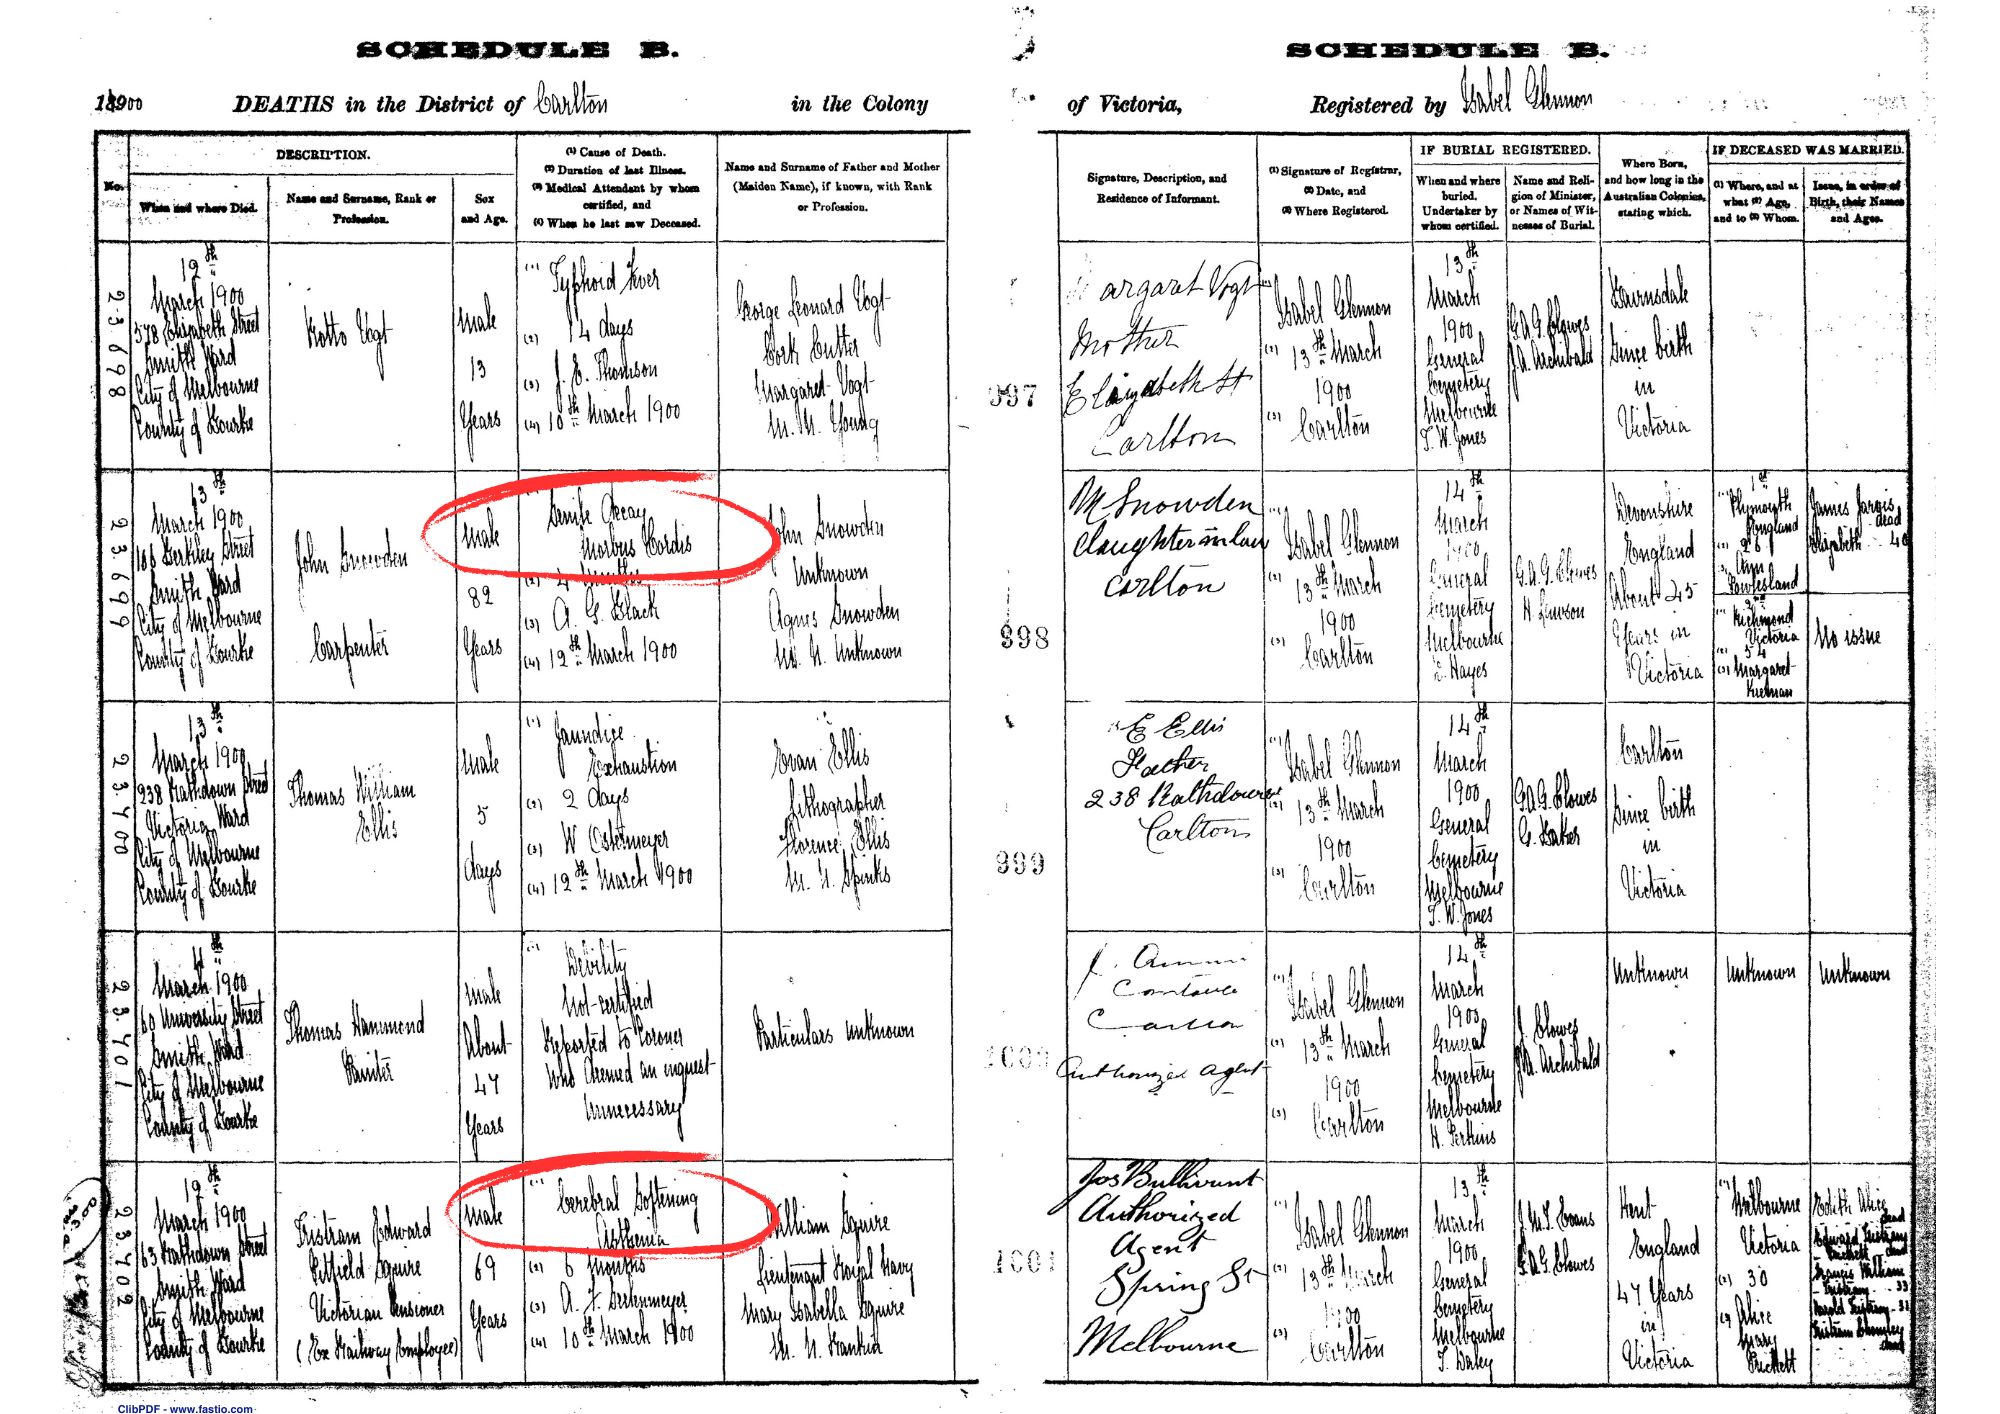 SCHEDULE B.
1900 DEATHS in the District of Carlton in the Colony
No.
DESCRIPTION.
When and where Died.
Name and Surname, Rank or
Profession.
Sex
and Age.
(1) Cause of Death.
(2) Duration of last Illness.
(3) Medical Attendant by whom
certified, and
(4) When he last saw Deceased.
Name and Surname of Father and Mother
(Maiden Name), if known, with Rank
or Profession.
23698
12th
March 1900
578 Elizabeth Street
Smith Ward
City of Melbourne
County of Bourke
Vogt
Male
13
Years
(1) Typhoid Fever
(2) 14 days
(3) J. E. Thomson
(4) 10th March 1900
George Leonard Vogt
Cork Cutter
Margaret Vogt
M. N. Young
23699
13th
March 1900
186 Berkley Street
Smith Ward
City of Melbourne
County of Bourke
John Snowden
Carpenter
Male
82
Years
(1) Senile Decay
Morbus Cordis
(2) 4 Months
(3) A. G. Black
(4) 12th March 1900
John Snowden
Unknown
Agnes Snowden
M. N. Unknown
23700
13th
March 1900
238 Rathdown Street
Victoria Ward
City of Melbourne
County of Bourke
Thomas William
Ellis
Male
5
days
(1) Jaundice
Exhaustion
(2) 2 days
(3) W Ostermeyer
(4) 12th March 1900
Evan Ellis
Lithographer
Florence Ellis
M. N. Spinks
23701
March 1900
60 University Street
Smith Ward
City of Melbourne
County of Bourke
Thomas Hammond
Painter
Male
About
47
Years
(1) Debility
Not certified
Reported to Coroner
Who deemed an inquest
Unnecessary
Particulars unknown
23702
12th
March 1900
63 Rathdown Street
Smith Ward
City of Melbourne
County of Bourke
Tristram Edward
Pitfield Squire
Victorian Pensioner
(Ex Railway Employee)
Male
69
Years
(1) Cerebral Softening
Asthenia
(2) 6 Months
(3) A.
(4) 10th March 1900
William Squire
Lieutenant Royal Navy
Mary Isabella Squire
M. N. Rankin
ClibPDF - www.fastio.com
SCHEDULE B.
of Victoria, Registered by Isabel Glennon
Signature, Description, and
Residence of Informant.
(1) Signature of Registrar,
(2) Date, and
(3) Where Registered.
IF BURIAL REGISTERED.
When and where
buried.
Undertaker by
whom certified.
Name and Reli-
gion of Minister,
or Names of Wit-
nesses of Burial.
Where Born,
and how long in the
Australian Colonies,
stating which.
IF DECEASED WAS MARRIED.
(1) Where, and at
what (2) Age,
and to (3) Whom.
Issue, in order of
Birth, their Names
and Ages.
997
Margaret Vogt
Mother
Elizabeth St
Carlton
(1) Isabel Glennon
(2) 13th March
1900
(3) Carlton
13th
March
1900
General
Cemetery
Melbourne
T. W. Jones
G. A. G. Clowes
J. A. Archibald
Bairnsdale
Since birth
in
Victoria
998
M Snowden
daughter in law
Carlton
(1) Isabel Glennon
(2) 13th March
1900
(3) Carlton
14th
March
1900
General
Cemetery
Melbourne
Hayes
G. A. G. Clowes
H. Lawson
Devonshire
England
About 45
Years in
Victoria
1st
(1) Plymouth
England
(2) 26
(3) Ann
2nd
(1) Richmond
Victoria
(2) 54
(3) Margaret
James Jarvis
dead
Elizabeth 40
No issue
999
E Ellis
Father
238 Rathdowne
Carlton
(1) Isabel Glennon
(2) 13th March
1900
(3) Carlton
14th
March
1900
General
Cemetery
Melbourne
T. W. Jones
G. A. G. Clowes
Carlton
Since birth
in
Victoria
1000
Carlton
Authorized Agent
(1) Isabel Glennon
(2) 13th March
1900
(3) Carlton
14th
March
1900
General
Cemetery
Melbourne
H. Perkins
J. Clowes
J. A. Archibald
Unknown
Unknown
Unknown
1001
Jos Bullivant
Authorized
Agent
Spring St
Melbourne
(1) Isabel Glennon
(2) 13th March
1900
(3) Carlton
13th
March
1900
General
Cemetery
Melbourne
T. Daley
Evans
G. A. G. Clowes
Kent
England
47 Years
in
Victoria
(1) Melbourne
Victoria
(2) 30
(3) Alice
Mary
Prickett
Edith Alice
dead
Edward Tristram
Prickett dead
Francis William
Tristram 33
Harold Tristram 31
Tristram
dead